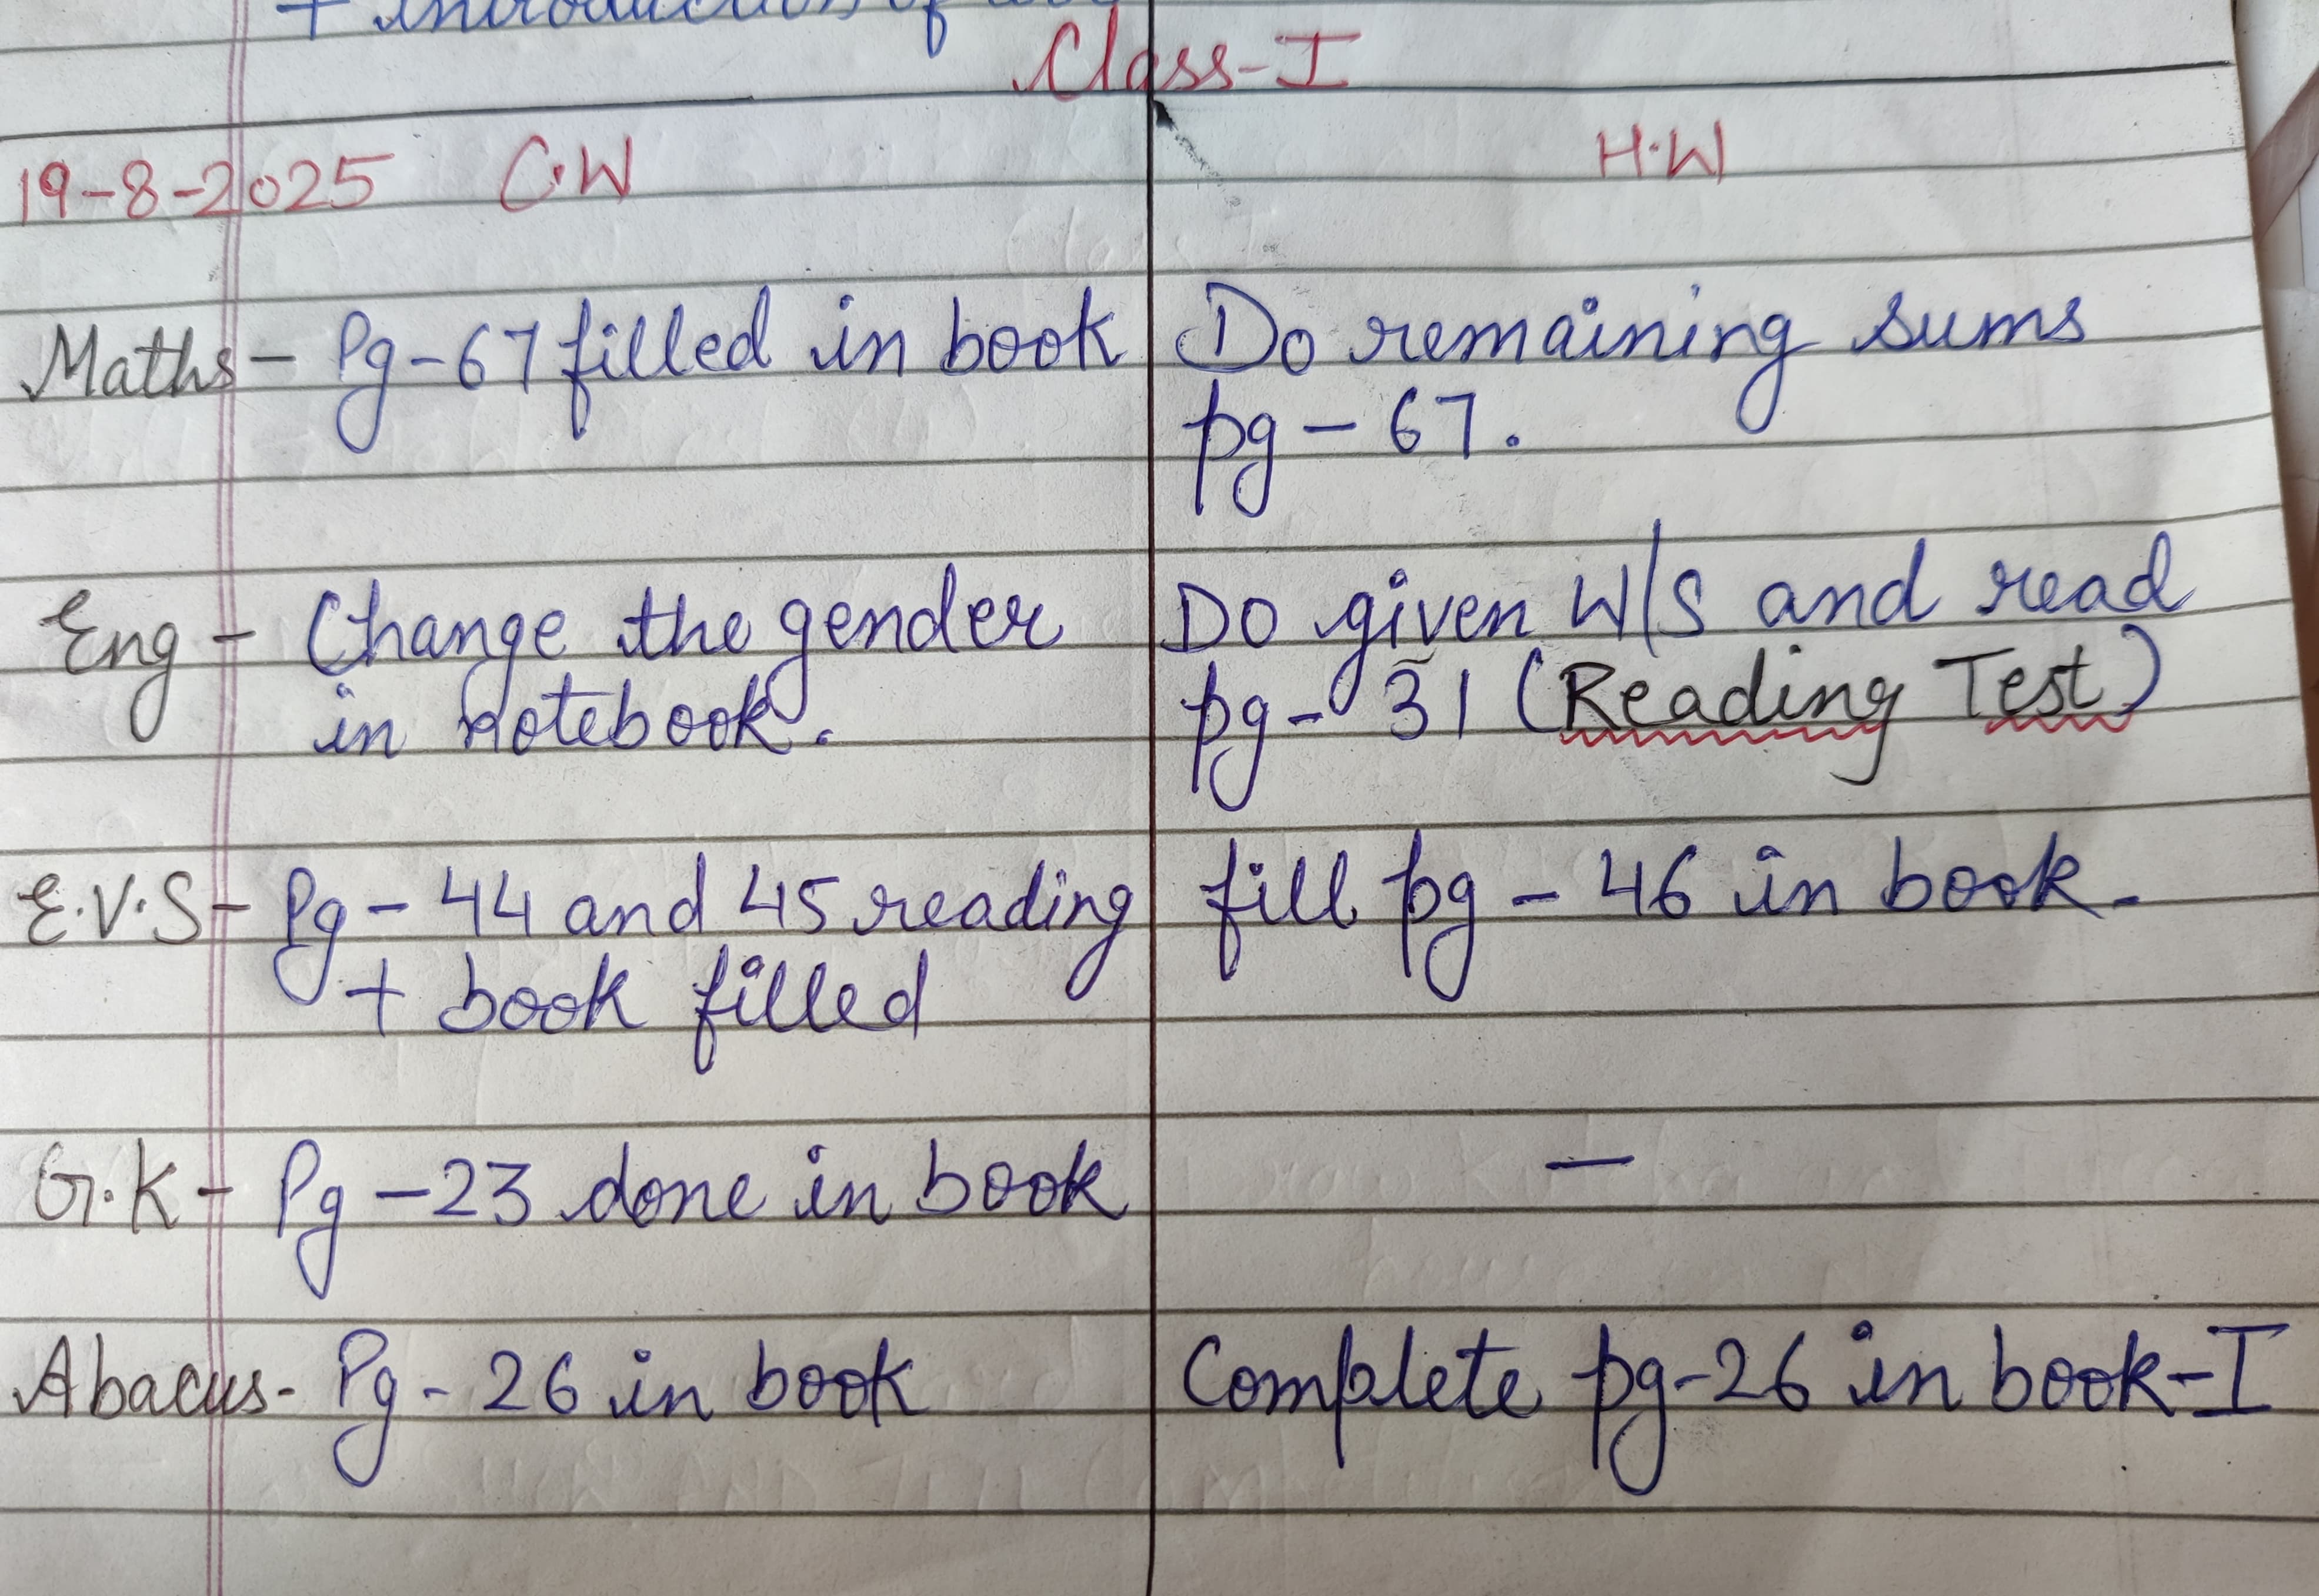 + introduction of
Class-I
19-8-2025 C.W H.W
Maths- Pg-67 filled in book Do remaining sums
pg-67.
Eng- Change the gender Do given W/S and read
in notebook. pg-31 (Reading Test)
E.V.S- Pg-44 and 45 reading fill pg-46 in book.
+ book filled
G.K- Pg-23 done in book —
Abacus- Pg-26 in book Complete pg-26 in book-I